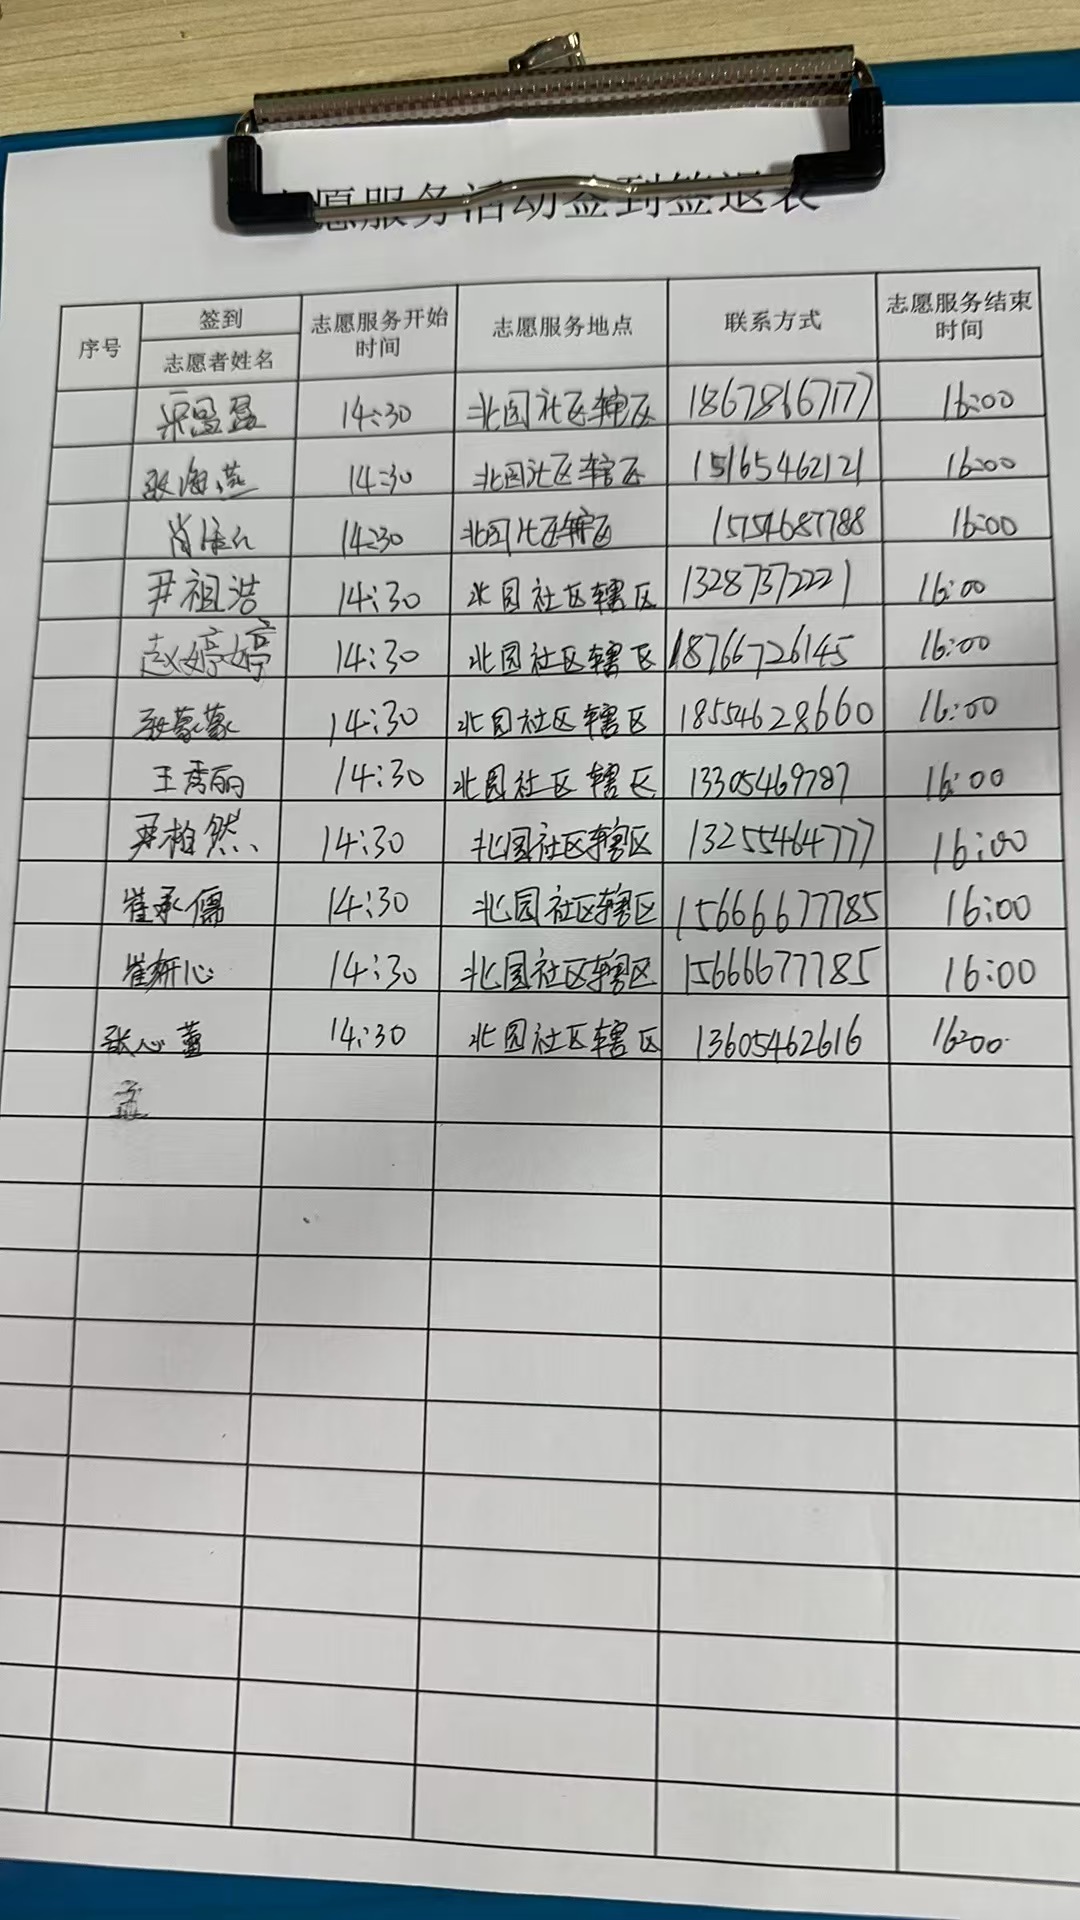 志愿服务活动签到签退表
序号 签到 志愿服务开始时间 志愿服务地点 联系方式 志愿服务结束时间
志愿者姓名
盈盈 14:30 北园社区辖区 18678667177 16:00
张海燕 14:30 北园社区辖区 15165462121 16:00
肖 14:30 北园社区辖区 15154687788 16:00
尹祖浩 14:30 北园社区辖区 13287372221 16:00
赵婷婷 14:30 北园社区辖区 18766726145 16:00
张蒙蒙 14:30 北园社区辖区 18554628660 16:00
王秀丽 14:30 北园社区辖区 13305469787 16:00
尹柏然 14:30 北园社区辖区 13255464777 16:00
崔承儒 14:30 北园社区辖区 15666677785 16:00
崔妍心 14:30 北园社区辖区 15666677785 16:00
张心 14:30 北园社区辖区 13605462616 16:00